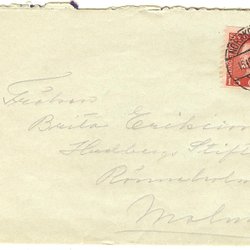 Fröken
Brita Ericsin
Hedbergs Stift
Rönneholm
Malm